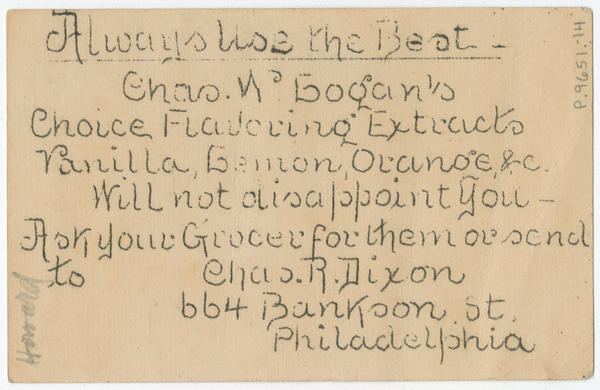 Always Use the Best -
Chas. Mc Logan's
Choice Flavoring Extracts
Vanilla, Lemon, Orange, &c.
Will not disappoint You -
Ask your Grocer for them or send
to Chas. R. Dixon
664 Bankson St.
Philadelphia
P.9651.14
Howard